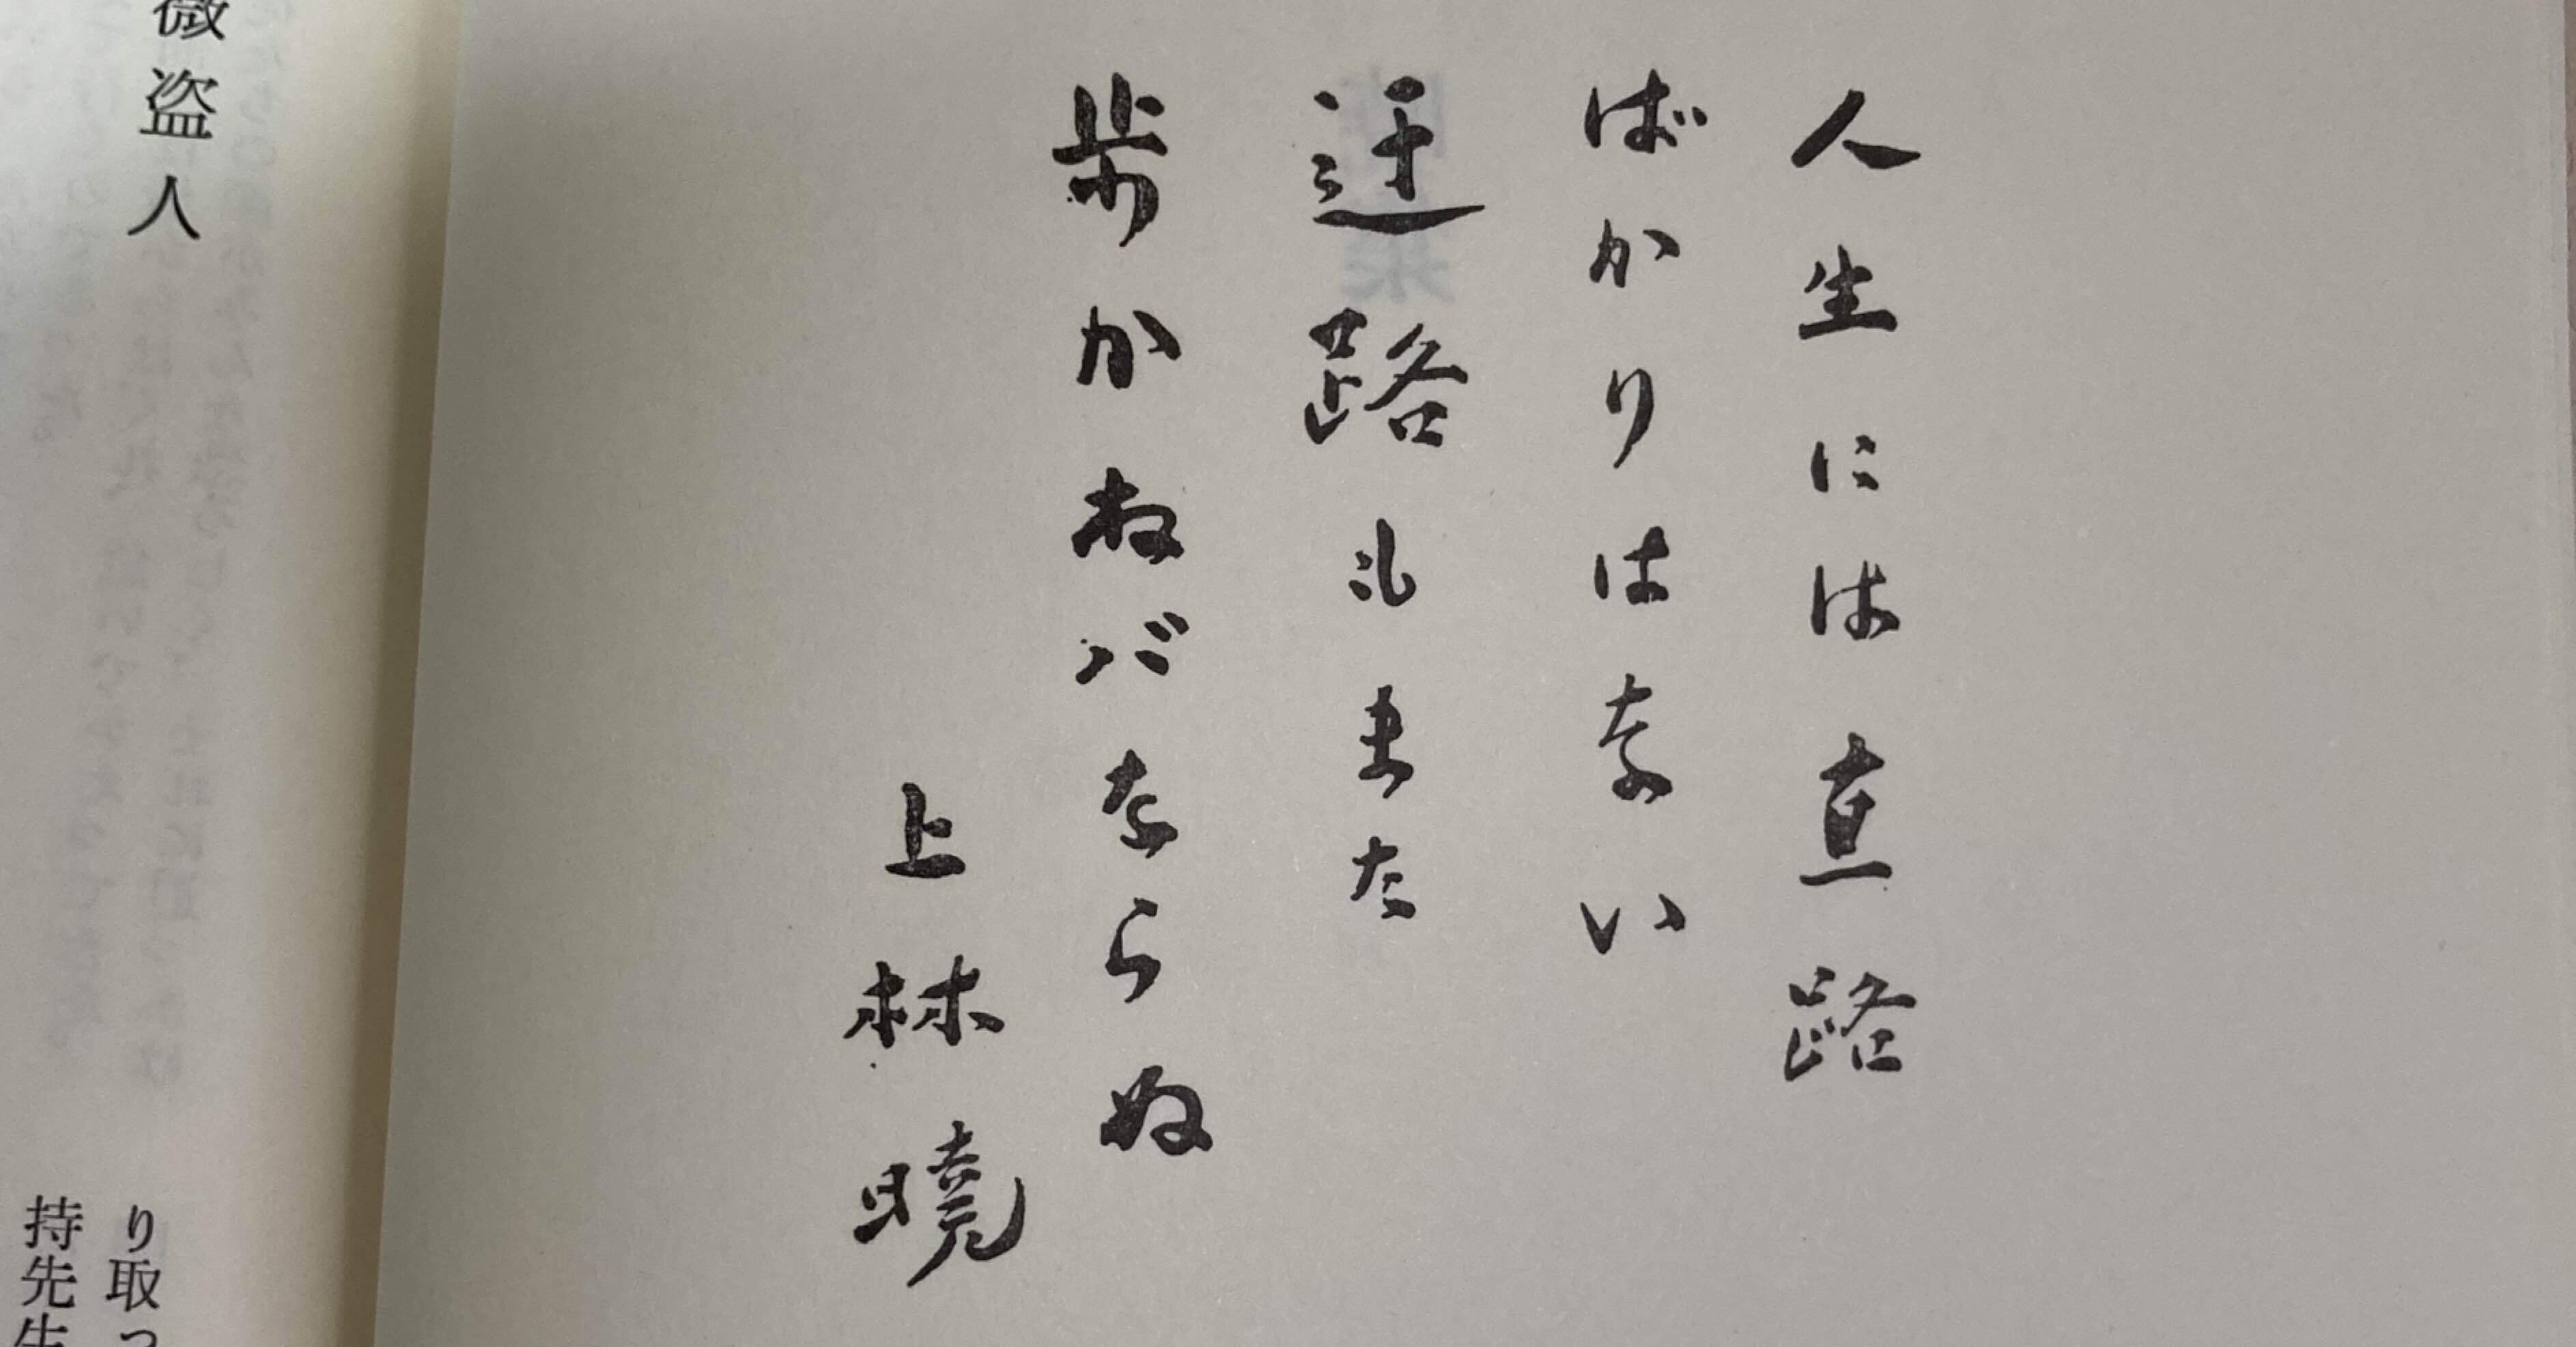 人生には直路
ばかりはない
迂路もまた
歩かねバならぬ
上林暁
薇盗人
り取っ
持先生